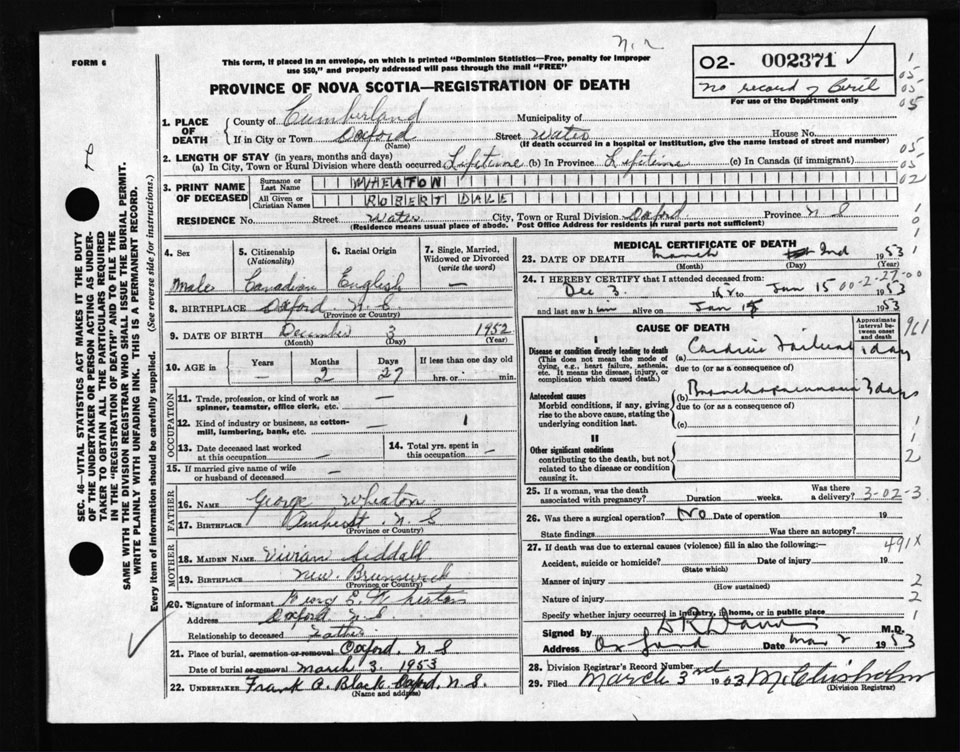 FORM 6
This form, if placed in an envelope, on which is printed "Dominion Statistics—Free, penalty for improper
use $50," and properly addressed will pass through the mail "FREE"
02- 002371
no record of Birth
For use of the Department only
PROVINCE OF NOVA SCOTIA—REGISTRATION OF DEATH
1. PLACE OF DEATH
County of Cumberland Municipality of
If in City or Town Oxford Street Water House No.
(Name) (If death occurred in a hospital or institution, give the name instead of street and number)
2. LENGTH OF STAY (in years, months and days)
(a) In City, Town or Rural Division where death occurred Lifetime (b) In Province Lifetime (c) In Canada (if immigrant)
3. PRINT NAME OF DECEASED
Surname or Last Name WHEATON
All Given or Christian Names ROBERT DALE
RESIDENCE No. Street Water City, Town or Rural Division Oxford Province N S
(Residence means usual place of abode. Post Office Address for residents in rural parts not sufficient)
4. Sex
Male
5. Citizenship (Nationality)
Canadian
6. Racial Origin
English
7. Single, Married, Widowed or Divorced (write the word)
—
8. BIRTHPLACE Oxford N.S.
(Province or Country)
9. DATE OF BIRTH December 3 1952
(Month) (Day) (Year)
10. AGE in Years Months Days If less than one day old
— 2 27 hrs. or min.
OCCUPATION
11. Trade, profession, or kind of work as spinner, teamster, office clerk, etc. —
12. Kind of industry or business, as cotton-mill, lumbering, bank, etc. —
13. Date deceased last worked at this occupation —
14. Total yrs. spent in this occupation —
15. If married give name of wife or husband of deceased —
FATHER
16. NAME George Wheaton
17. BIRTHPLACE Amherst N.S
(Province or Country)
MOTHER
18. MAIDEN NAME Vivian Siddall
19. BIRTHPLACE New Brunswick
(Province or Country)
20. Signature of informant George E. Wheaton
Address Oxford N.S.
Relationship to deceased Father
21. Place of burial, cremation or removal Oxford, N.S
Date of burial or removal March 3. 1953
22. UNDERTAKER Frank A. Black. Oxford. N.S.
(Name and address)
MEDICAL CERTIFICATE OF DEATH
23. DATE OF DEATH March 2nd 1953
(Month) (Day) (Year)
24. I HEREBY CERTIFY that I attended deceased from:
Dec 3. to Jan 15 1953
and last saw him alive on Jan 15 1953
CAUSE OF DEATH
Approximate interval between onset and death
I
Disease or condition directly leading to death
(This does not mean the mode of dying, e.g., heart failure, asthenia, etc. It means the disease, injury, or complication which caused death.)
(a) Cardiac Failure 1 day
due to (or as a consequence of)
Antecedent causes
Morbid conditions, if any, giving rise to the above cause, stating the underlying condition last.
(b) Bronchopneumonia 3 days
due to (or as a consequence of)
(c)
II
Other significant conditions
contributing to the death, but not related to the disease or condition causing it.
25. If a woman, was the death associated with pregnancy? Duration weeks. Was there a delivery? 3-02-3
26. Was there a surgical operation? No Date of operation 19
State findings Was there an autopsy?
491X
27. If death was due to external causes (violence) fill in also the following:—
Accident, suicide or homicide? Date of injury 19
(State which)
Manner of injury
(How sustained)
Nature of injury
Specify whether injury occurred in industry, in home, or in public place
Signed by M.D.
Address Oxford Date Mar 2 1953
28. Division Registrar's Record Number
29. Filed March 3rd M. Chisholm
(Division Registrar)
SEC. 46—VITAL STATISTICS ACT MAKES IT THE DUTY
OF THE UNDERTAKER OR PERSON ACTING AS UNDER-
TAKER TO OBTAIN ALL THE PARTICULARS REQUIRED
IN THE "REGISTRATION OF DEATH" AND TO FILE THE
SAME WITH THE DIVISION REGISTRAR WHO SHALL ISSUE THE BURIAL PERMIT.
WRITE PLAINLY WITH UNFADING INK. THIS IS A PERMANENT RECORD.
Every item of information should be carefully supplied. (See reverse side for instructions.)